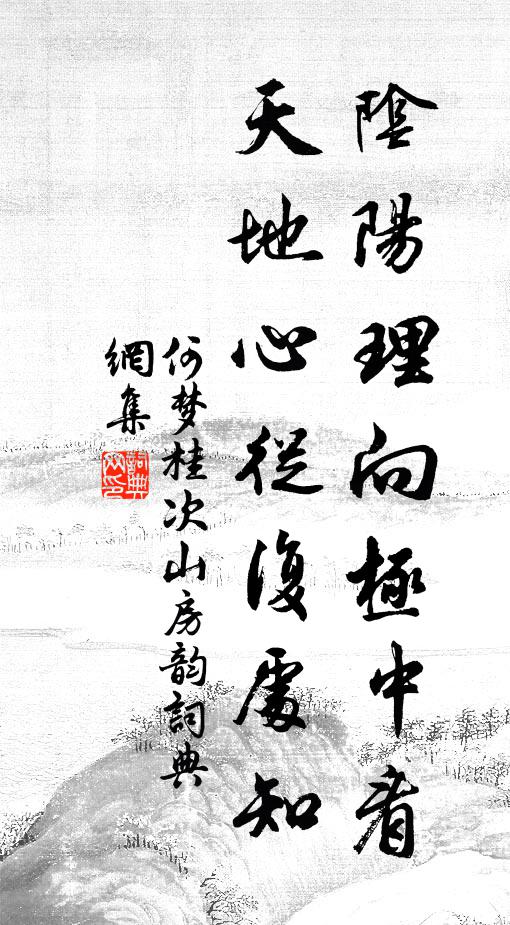 陰陽理向極中看
天地心從復處知
何梦桂次山房韵詞典
網集
詞典